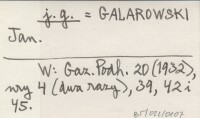 j. g. = GALAROWSKI
Jan.
W: Gaz. Podh. 20 (1932),
nry 4 (dwa razy), 39, 42 i
45.
BJ/022/0107